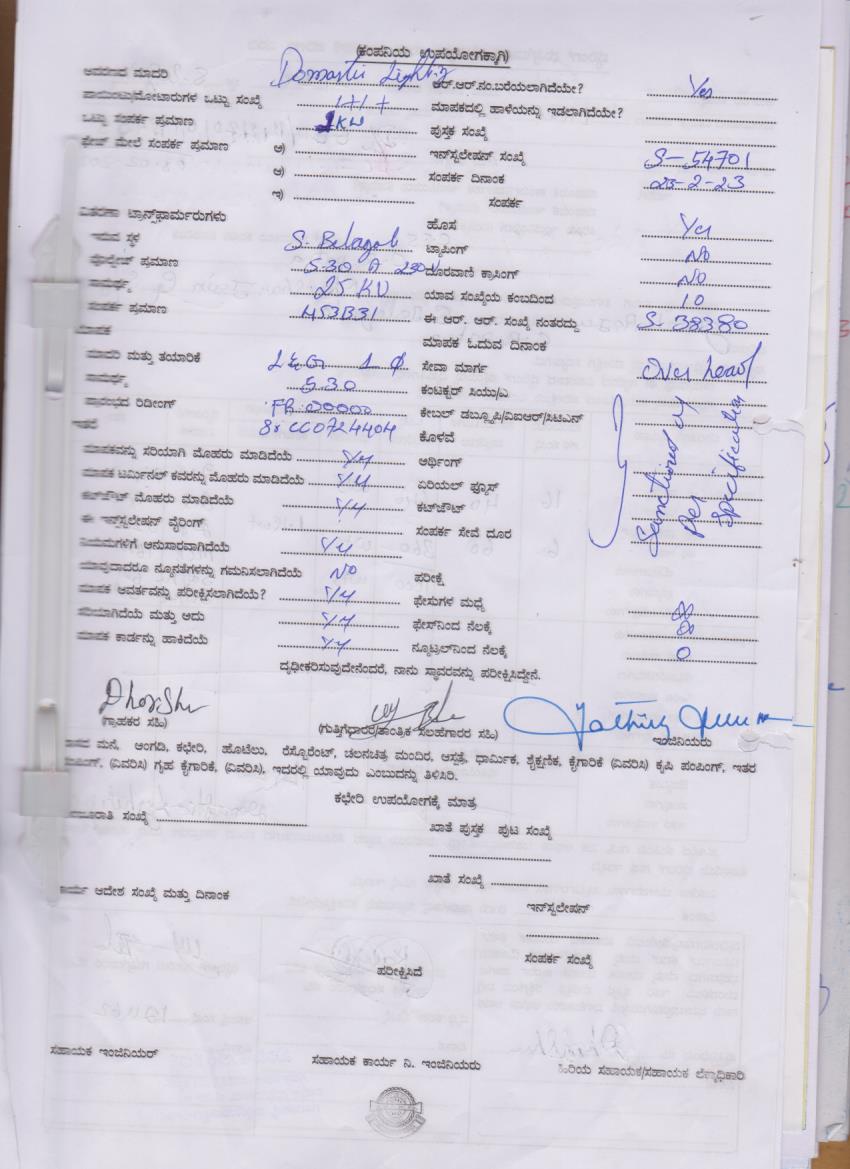 (ಕಂಪನಿಯ ಉಪಯೋಗಕ್ಕಾಗಿ)
ಆವರಣದ ಮಾದರಿ Domestic Lighting ಆರ್.ಆರ್.ನಂ.ಬರೆಯಲಾಗಿದೆಯೇ? Yes
ಪಾಯಿಂಟು/ಮೋಟಾರುಗಳ ಒಟ್ಟು ಸಂಖ್ಯೆ 1+1+ ಮಾಪಕದಲ್ಲಿ ಹಾಳೆಯನ್ನು ಇಡಲಾಗಿದೆಯೇ?
ಒಟ್ಟು ಸಂಪರ್ಕ ಪ್ರಮಾಣ 1KW ಪುಸ್ತಕ ಸಂಖ್ಯೆ
ಫೇಜ್ ಮೇಲೆ ಸಂಪರ್ಕ ಪ್ರಮಾಣ ಅ) ಇನ್‌ಸ್ಟಲೇಷನ್ ಸಂಖ್ಯೆ S-54701
ಆ) ಸಂಪರ್ಕ ದಿನಾಂಕ 23-2-23
ಇ) ಸಂಪರ್ಕ
ವಿತರಣಾ ಟ್ರಾನ್ಸ್‌ಫಾರ್ಮರುಗಳು ಹೊಸ Yes
ಇರುವ ಸ್ಥಳ S. Belagol ಟ್ಯಾಪಿಂಗ್ NO
ವೋಲ್ಟೇಜ್ ಪ್ರಮಾಣ 5-30 A 230V ದೂರವಾಣಿ ಕ್ರಾಸಿಂಗ್ NO
ಸಾಮರ್ಥ್ಯ 25 KV ಯಾವ ಸಂಖ್ಯೆಯ ಕಂಬದಿಂದ 10
ಸಂಪರ್ಕ ಪ್ರಮಾಣ 453B31 ಈ ಆರ್. ಆರ್. ಸಂಖ್ಯೆ ನಂತರದ್ದು S-38380
ಮಾಪಕ ಮಾಪಕ ಓದುವ ದಿನಾಂಕ
ಮಾದರಿ ಮತ್ತು ತಯಾರಿಕೆ L&G 1 Φ ಸೇವಾ ಮಾರ್ಗ Over head
ಸಾಮರ್ಥ್ಯ 5-30 ಕಂಟಕ್ಟರ್ ಸಿಯು/ಎ
ಪ್ರಾರಂಭದ ರಿಡೀಂಗ್ FR 00000 ಕೇಬಲ್ ಡಬ್ಲ್ಯೂಪಿ/ವಿಐಆರ್/ಸಿಟಿಎಸ್
ಇತರೆ CC0724404 ಕೊಳವೆ
ಮಾಪಕವನ್ನು ಸರಿಯಾಗಿ ಮೊಹರು ಮಾಡಿದೆಯೆ Yes ಅರ್ಥಿಂಗ್
ಮಾಪಕ ಟರ್ಮಿನಲ್ ಕವರನ್ನು ಮೊಹರು ಮಾಡಿದೆಯೆ Yes ಏರಿಯಲ್ ಫ್ಯೂಸ್
ಕಟ್‌ಔಟ್ ಮೊಹರು ಮಾಡಿದೆಯೆ Yes ಕಟ್‌ಔಟ್
Sanctioned as
per
specification
ಈ ಇನ್‌ಸ್ಟಲೇಷನ್ ವೈರಿಂಗ್ ಸಂಪರ್ಕ ಸೇವೆ ದೂರ
ನಿಯಮಗಳಿಗೆ ಅನುಸಾರವಾಗಿದೆಯೆ Yes
ಯಾವುದಾದರೂ ನ್ಯೂನತೆಗಳನ್ನು ಗಮನಿಸಲಾಗಿದೆಯೆ NO ಪರೀಕ್ಷೆ
ಮಾಪಕ ಆವರ್ತವನ್ನು ಪರೀಕ್ಷಿಸಲಾಗಿದೆಯೆ? Yes ಫೇಸುಗಳ ಮಧ್ಯೆ ∞
ಸರಿಯಾಗಿದೆಯೆ ಮತ್ತು ಅದು Yes ಫೇಸ್‌ನಿಂದ ನೆಲಕ್ಕೆ ∞
ಮಾಪಕ ಕಾರ್ಡನ್ನು ಹಾಕಿದೆಯೆ Yes ನ್ಯೂಟ್ರಲ್‌ನಿಂದ ನೆಲಕ್ಕೆ 0
ದೃಢೀಕರಿಸುವುದೇನೆಂದರೆ, ನಾನು ಸ್ಥಾವರವನ್ನು ಪರೀಕ್ಷಿಸಿದ್ದೇನೆ.
(ಗ್ರಾಹಕರ ಸಹಿ) (ಗುತ್ತಿಗೆಧಾರರ/ತಾಂತ್ರಿಕ ಸಲಹೆಗಾರರ ಸಹಿ) ಇಂಜಿನಿಯರು
ವಾಸದ ಮನೆ, ಅಂಗಡಿ, ಕಛೇರಿ, ಹೊಟೆಲು, ರೆಸ್ಟೊರೆಂಟ್, ಚಲನಚಿತ್ರ ಮಂದಿರ, ಆಸ್ಪತ್ರೆ, ಧಾರ್ಮಿಕ, ಶೈಕ್ಷಣಿಕ, ಕೈಗಾರಿಕೆ (ವಿವರಿಸಿ) ಕೃಷಿ ಪಂಪಿಂಗ್, ಇತರ
ಪಂಪಿಂಗ್, (ವಿವರಿಸಿ) ಗೃಹ ಕೈಗಾರಿಕೆ, (ವಿವರಿಸಿ), ಇದರಲ್ಲಿ ಯಾವುದು ಎಂಬುದನ್ನು ತಿಳಿಸಿರಿ.
ಕಛೇರಿ ಉಪಯೋಗಕ್ಕೆ ಮಾತ್ರ
ಮಂಜೂರಾತಿ ಸಂಖ್ಯೆ ಖಾತೆ ಪುಸ್ತಕ ಪುಟ ಸಂಖ್ಯೆ
ಖಾತೆ ಸಂಖ್ಯೆ
ಕಾರ್ಯ ಆದೇಶ ಸಂಖ್ಯೆ ಮತ್ತು ದಿನಾಂಕ
ಇನ್‌ಸ್ಟಲೇಷನ್
ಸಂಪರ್ಕ ಸಂಖ್ಯೆ
ಪರೀಕ್ಷಿಸಿದೆ
ಸಹಾಯಕ ಇಂಜಿನಿಯರ್ ಸಹಾಯಕ ಕಾರ್ಯ ನಿ. ಇಂಜಿನಿಯರು ಹಿರಿಯ ಸಹಾಯಕ/ಸಹಾಯಕ ಲೆಕ್ಕಾಧಿಕಾರಿ